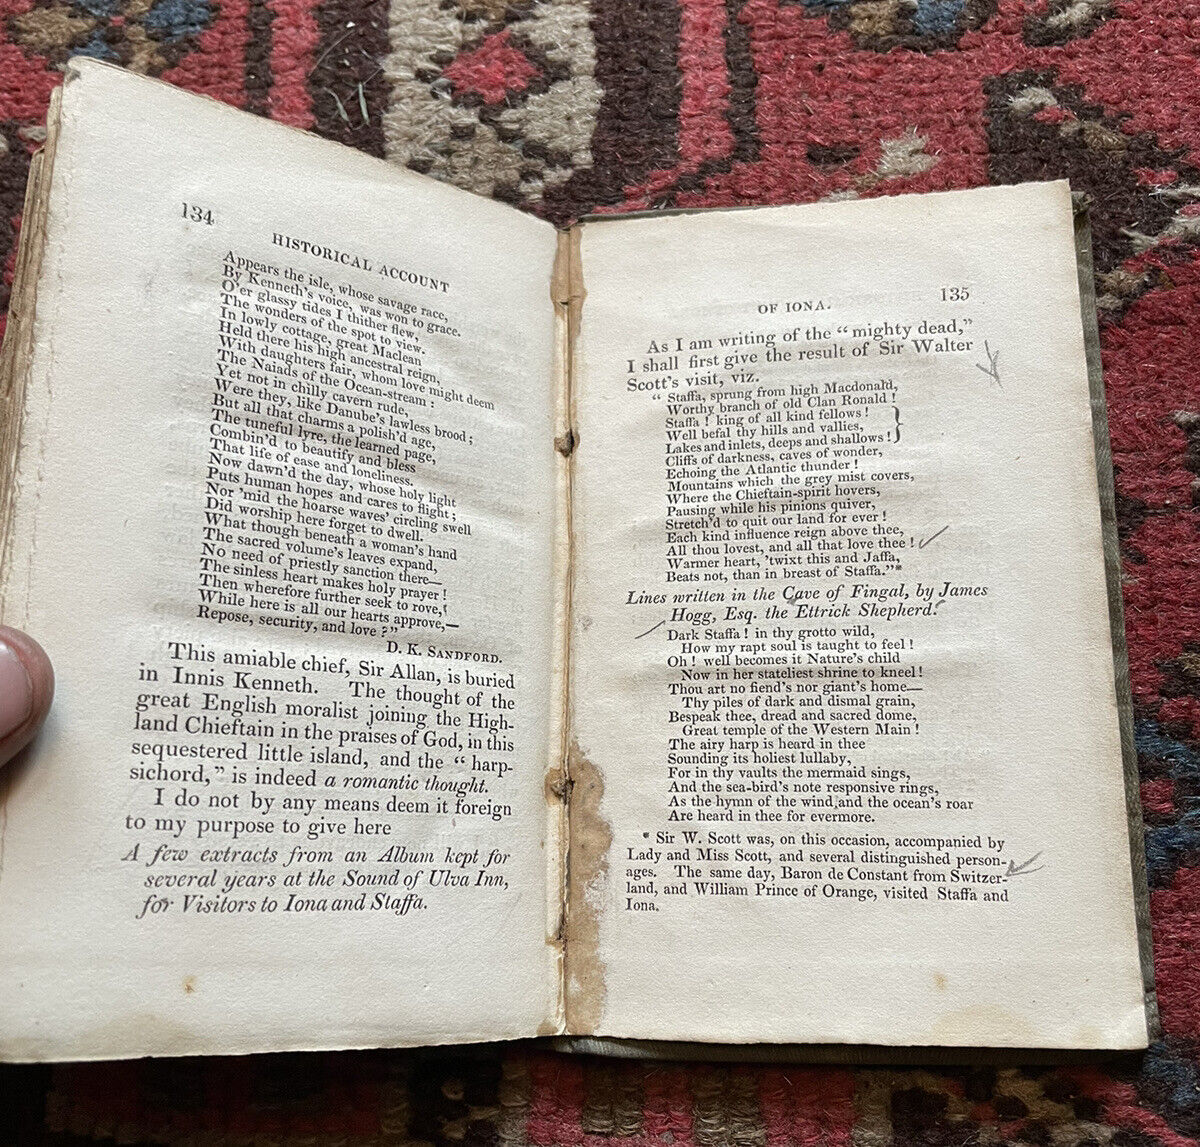 134
HISTORICAL ACCOUNT
Appears the isle, whose savage race,
By Kenneth's voice, was won to grace.
O'er glassy tides I thither flew,
The wonders of the spot to view.
In lowly cottage, great Maclean
Held there his high ancestral reign,
With daughters fair, whom love might deem
The Naiads of the Ocean-stream :
Yet not in chilly cavern rude,
Were they, like Danube's lawless brood ;
But all that charms a polish'd age,
The tuneful lyre, the learned page,
Combin'd to beautify and bless
That life of ease and loneliness.
Now dawn'd the day, whose holy light
Puts human hopes and cares to flight ;
Nor 'mid the hoarse waves' circling swell
Did worship here forget to dwell.
What though beneath a woman's hand
The sacred volume's leaves expand,
No need of priestly sanction there—
The sinless heart makes holy prayer !
Then wherefore further seek to rove,
While here is all our hearts approve,—
Repose, security, and love ?"
D. K. SANDFORD.
This amiable chief, Sir Allan, is buried
in Innis Kenneth. The thought of the
great English moralist joining the High-
land Chieftain in the praises of God, in this
sequestered little island, and the “ harp-
sichord,” is indeed a romantic thought.
I do not by any means deem it foreign
to my purpose to give here
A few extracts from an Album kept for
several years at the Sound of Ulva Inn,
for Visitors to Iona and Staffa.
OF IONA.
135
As I am writing of the “ mighty dead,”
I shall first give the result of Sir Walter
Scott's visit, viz.
“ Staffa, sprung from high Macdonald,
Worthy branch of old Clan Ronald !
Staffa ! king of all kind fellows !
Well befal thy hills and vallies,
Lakes and inlets, deeps and shallows !
Cliffs of darkness, caves of wonder,
Echoing the Atlantic thunder !
Mountains which the grey mist covers,
Where the Chieftain-spirit hovers,
Pausing while his pinions quiver,
Stretch'd to quit our land for ever !
Each kind influence reign above thee,
All thou lovest, and all that love thee !
Warmer heart, 'twixt this and Jaffa,
Beats not, than in breast of Staffa.”*
Lines written in the Cave of Fingal, by James
Hogg, Esq. the Ettrick Shepherd.
Dark Staffa ! in thy grotto wild,
How my rapt soul is taught to feel !
Oh ! well becomes it Nature's child
Now in her stateliest shrine to kneel !
Thou art no fiend's nor giant's home—
Thy piles of dark and dismal grain,
Bespeak thee, dread and sacred dome,
Great temple of the Western Main !
The airy harp is heard in thee
Sounding its holiest lullaby,
For in thy vaults the mermaid sings,
And the sea-bird's note responsive rings,
As the hymn of the wind and the ocean's roar
Are heard in thee for evermore.
* Sir W. Scott was, on this occasion, accompanied by
Lady and Miss Scott, and several distinguished person-
ages. The same day, Baron de Constant from Switzer-
land, and William Prince of Orange, visited Staffa and
Iona.